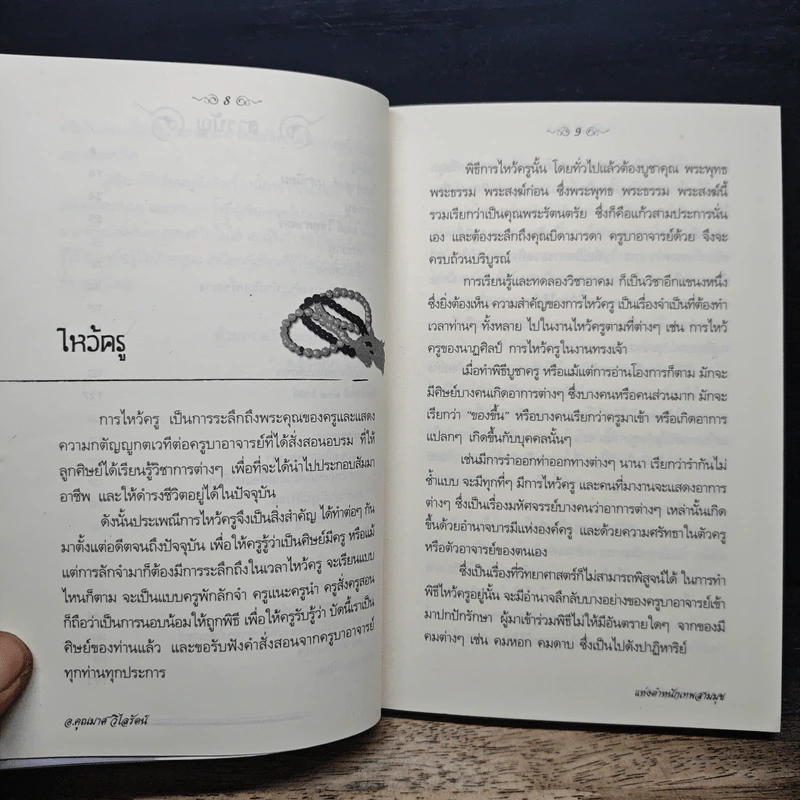 8
ไหว้ครู
การไหว้ครู เป็นการระลึกถึงพระคุณของครูและแสดง
ความกตัญญูกตเวทีต่อครูบาอาจารย์ที่ได้สั่งสอนอบรม ที่ให้
ลูกศิษย์ได้เรียนรู้วิชาการต่างๆ เพื่อที่จะได้นำไปประกอบสัมมา
อาชีพ และให้ดำรงชีวิตอยู่ได้ในปัจจุบัน
ดังนั้นประเพณีการไหว้ครูจึงเป็นสิ่งสำคัญ ได้ทำต่อๆ กัน
มาตั้งแต่อดีตจนถึงปัจจุบัน เพื่อให้ครูรู้ว่าเป็นศิษย์มีครู หรือแม้
แต่การลักจำมาก็ต้องมีการระลึกถึงในเวลาไหว้ครู จะเรียนแบบ
ไหนก็ตาม จะเป็นแบบครูพักลักจำ ครูแนะครูนำ ครูสั่งครูสอน
ก็ถือว่าเป็นการนอบน้อมให้ถูกพิธี เพื่อให้ครูรับรู้ว่า บัดนี้เราเป็น
ศิษย์ของท่านแล้ว และขอรับฟังคำสั่งสอนจากครูบาอาจารย์
ทุกท่านทุกประการ
อ.คุณมาศ วิไลรัตน์
9
พิธีการไหว้ครูนั้น โดยทั่วไปแล้วต้องบูชาคุณ พระพุทธ
พระธรรม พระสงฆ์ก่อน ซึ่งพระพุทธ พระธรรม พระสงฆ์นี้
รวมเรียกว่าเป็นคุณพระรัตนตรัย ซึ่งก็คือแก้วสามประการนั่น
เอง และต้องระลึกถึงคุณบิดามารดา ครูบาอาจารย์ด้วย จึงจะ
ครบถ้วนบริบูรณ์
การเรียนรู้และทดลองวิชาอาคม ก็เป็นวิชาอีกแขนงหนึ่ง
ซึ่งยิ่งต้องเห็น ความสำคัญของการไหว้ครู เป็นเรื่องจำเป็นที่ต้องทำ
เวลาท่านๆ ทั้งหลาย ไปในงานไหว้ครูตามที่ต่างๆ เช่น การไหว้
ครูของนาฏศิลป์ การไหว้ครูในงานทรงเจ้า
เมื่อทำพิธีบูชาครู หรือแม้แต่การอ่านโองการก็ตาม มักจะ
มีศิษย์บางคนเกิดอาการต่างๆ ซึ่งบางคนหรือคนส่วนมาก มักจะ
เรียกว่า "ของขึ้น" หรือบางคนเรียกว่าครูมาเข้า หรือเกิดอาการ
แปลกๆ เกิดขึ้นกับบุคคลนั้นๆ
เช่นมีการร่ำออกท่าออกทางต่างๆ นานา เรียกว่ารำกันไม่
ซ้ำแบบ จะมีทุกที่ๆ มีการไหว้ครู และคนที่มางานจะแสดงอาการ
ต่างๆ ซึ่งเป็นเรื่องมหัศจรรย์บางคนว่าอาการต่างๆ เหล่านั้นเกิด
ขึ้นด้วยอำนาจบารมีแห่งองค์ครู และด้วยความศรัทธาในตัวครู
หรือตัวอาจารย์ของตนเอง
ซึ่งเป็นเรื่องที่วิทยาศาสตร์ก็ไม่สามารถพิสูจน์ได้ ในการทำ
พิธีไหว้ครูอยู่นั้น จะมีอำนาจลึกลับบางอย่างของครูบาอาจารย์เข้า
มาปกปักรักษา ผู้มาเข้าร่วมพิธีไม่ให้มีอันตรายใดๆ จากของมี
คมต่างๆ เช่น คมหอก คมดาบ ซึ่งเป็นไปดังปาฏิหาริย์
แห่งตำหนักเทพสามมุข